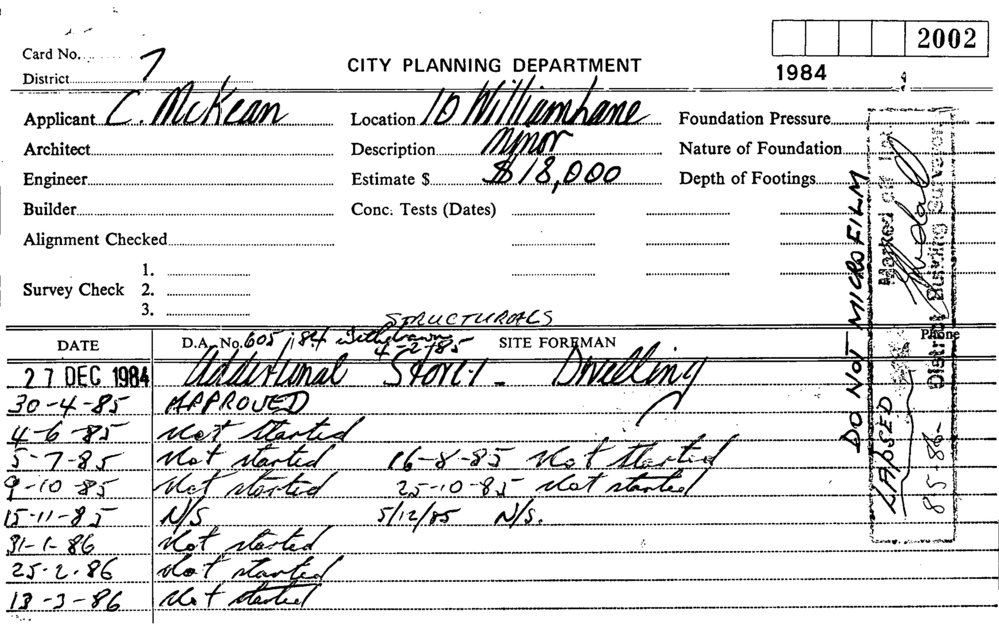 2002
Card No. 7
CITY PLANNING DEPARTMENT
1984
District
Applicant C. McKean
Location 10 William Lane
Foundation Pressure
Architect
Description Minor
Nature of Foundation
Engineer
Estimate $ $18,000
Depth of Footings
Builder
Conc. Tests (Dates)
Alignment Checked
1.
Survey Check 2.
3.
STRUCTURALS
DATE
D.A. No. 605/84 Withdrawn 4-2-85
SITE FOREMAN
Phone
27 DEC 1984 Additional Storey - Dwelling
30-4-85 APPROVED
4-6-85 Not started
5-7-85 Not started 16-8-85 Not started
9-10-85 Not started 25-10-85 Not started
15-11-85 N/S 5/12/85 N/S.
31-1-86 Not started
25-2-86 Not started
13-3-86 Not started
DO NOT MICROFILM
LAPSED
Marked off
District Building Surveyor
8-5-86